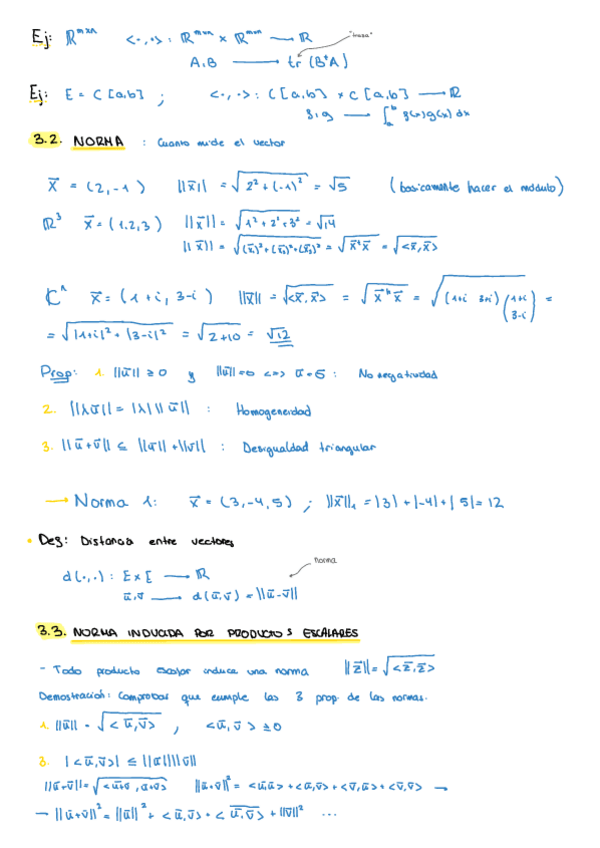 Ej: ℝ^{m×n} <·,·> : ℝ^{m×n} × ℝ^{m×n} → ℝ "traza"
A,B → tr (B^t A)
Ej: E = C[a,b] ; <·,·> : C[a,b] × C[a,b] → ℝ
f,g → ∫_a^b f(x)g(x) dx
3.2. NORMA : Cuanto mide el vector
x⃗ = (2,-1) ||x⃗|| = √(2² + (-1)²) = √5 (basicamente hacer el módulo)
ℝ³ x⃗ = (1,2,3) ||x⃗|| = √(1² + 2² + 3²) = √14
||x⃗|| = √((x⃗₁)² + (x⃗₂)² + (x⃗₃)²) = √(x⃗^t x⃗) = √<x⃗,x⃗>
ℂ^n x⃗ = (1+i, 3-i) ||x⃗|| = √<x⃗,x⃗> = √(x⃗^h x⃗) = √((1+i 3+i) (1+i 3-i)) =
= √(|1+i|² + |3-i|²) = √(2+10) = √12
Prop: 1. ||u⃗|| ≥ 0 y ||u⃗|| = 0 <=> u⃗ = 0⃗ : No negatividad
2. ||λu⃗|| = |λ| ||u⃗|| : Homogeneidad
3. ||u⃗+v⃗|| ≤ ||u⃗|| + ||v⃗|| : Desigualdad triangular
→ Norma 1: x⃗ = (3,-4,5) ; ||x⃗||₁ = |3| + |-4| + |5| = 12
• Def: Distancia entre vectores
norma
d(·,·) : E×E → ℝ
u⃗,v⃗ → d(u⃗,v⃗) = ||u⃗-v⃗||
3.3. NORMA INDUCIDA POR PRODUCTOS ESCALARES
- Todo producto escalar induce una norma ||z⃗|| = √<z⃗,z⃗>
Demostración: Comprobar que cumple las 3 prop. de las normas.
1. ||u⃗|| = √<u⃗,v⃗> , <u⃗,v⃗> ≥ 0
3. |<u⃗,v⃗>| ≤ ||u⃗|| ||v⃗||
||u⃗+v⃗|| = √<u⃗+v⃗, u⃗+v⃗> ||u⃗+v⃗||² = <u⃗,u⃗> + <u⃗,v⃗> + <v⃗,u⃗> + <v⃗,v⃗> →
→ ||u⃗+v⃗||² = ||u⃗||² + <u⃗,v⃗> + <u⃗,v⃗> + ||v⃗||² ...